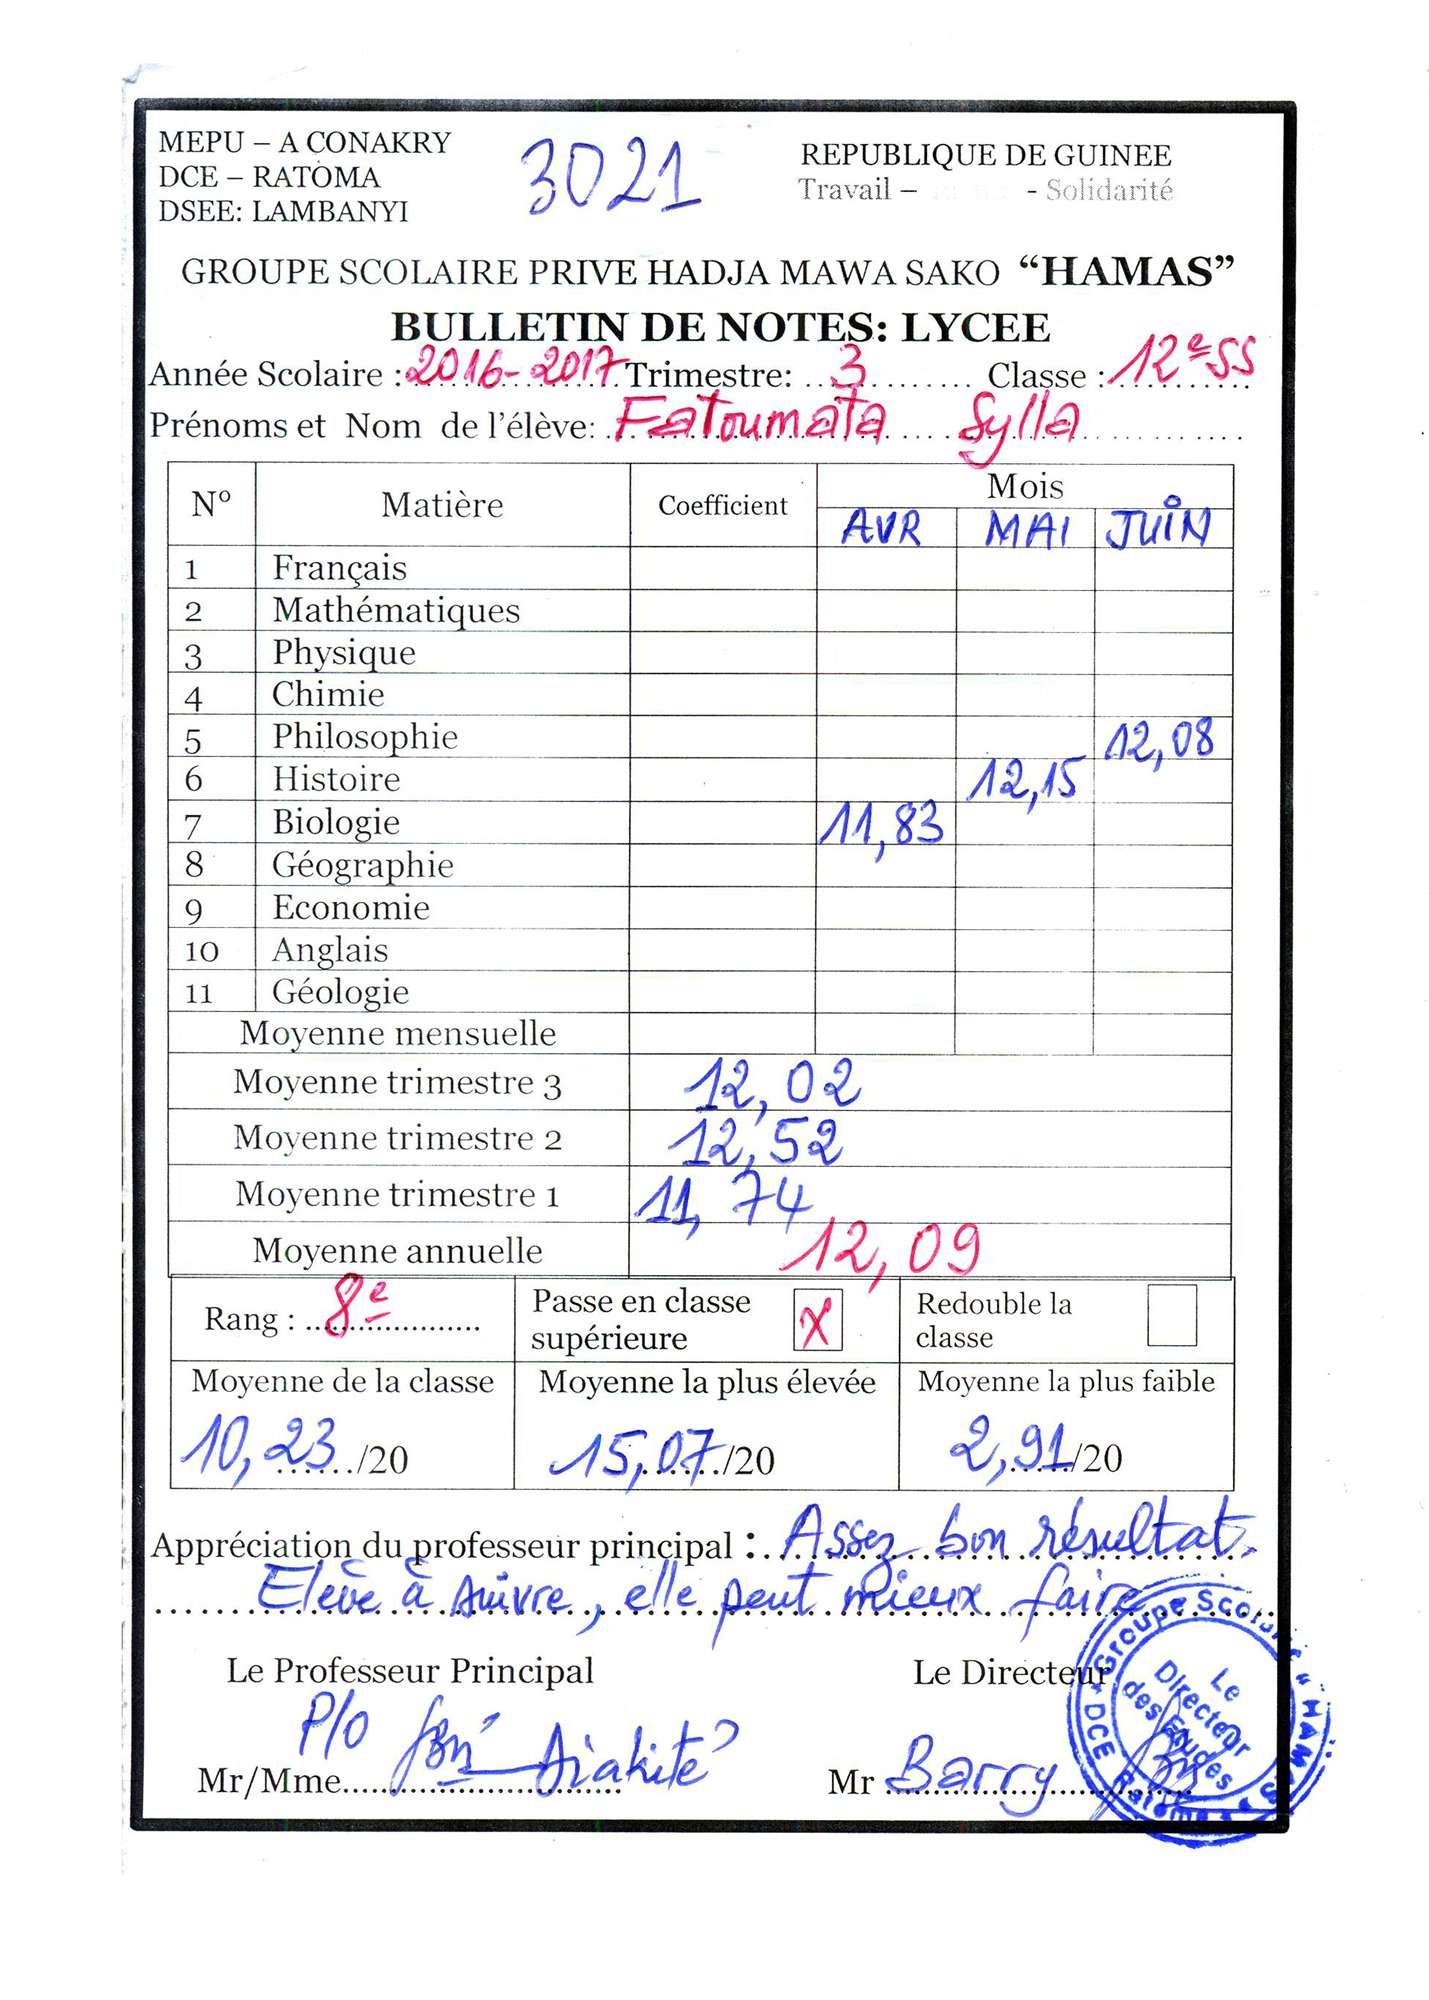 MEPU – A CONAKRY
DCE – RATOMA
DSEE: LAMBANYI
3021
REPUBLIQUE DE GUINEE
Travail – - Solidarité
GROUPE SCOLAIRE PRIVE HADJA MAWA SAKO “HAMAS”
BULLETIN DE NOTES: LYCEE
Année Scolaire : 2016-2017 Trimestre: 3 Classe : 12e SS
Prénoms et Nom de l'élève: Fatoumata Sylla
N° Matière Coefficient Mois
AVR MAI JUIN
1 Français
2 Mathématiques
3 Physique
4 Chimie
5 Philosophie 12,08
6 Histoire 12,15
7 Biologie 11,83
8 Géographie
9 Economie
10 Anglais
11 Géologie
Moyenne mensuelle
Moyenne trimestre 3 12,02
Moyenne trimestre 2 12,52
Moyenne trimestre 1 11,74
Moyenne annuelle 12,09
Rang : 8e
Passe en classe supérieure X
Redouble la classe
Moyenne de la classe Moyenne la plus élevée Moyenne la plus faible
10,23/20 15,07/20 2,91/20
Appréciation du professeur principal : Assez bon résultat.
Elève à suivre, elle peut mieux faire
Le Professeur Principal Le Directeur
P/O
Mr/Mme Diakité
Mr Barry
Groupe Scolaire "HAMAS"
DCE Ratoma
Le Directeur des Etudes